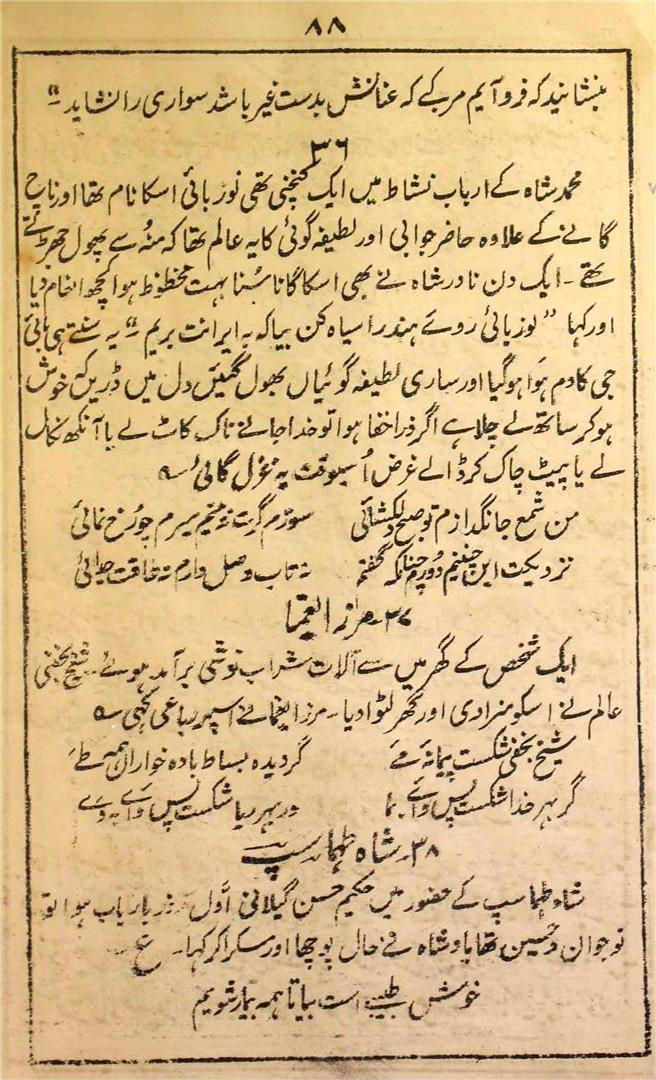 ۸۸
بنشانید که فرو آیم مرکبے که عنانش بدست غیر باشد سواری را نشاید"
۳۶
محمد شاہ کے ارباب نشاط میں ایک کنچنی تھی نور بائی اسکا نام تھا اور ناچ
گانے کے علاوہ حاضر جوابی اور لطیفہ گوئی کا یہ عالم تھا کہ منہ سے پھول جھڑتے
تھے۔ ایک دن نادر شاہ نے بھی اسکا گانا سُنا بہت محظوظ ہوا کچھ انعام دیا
اور کہا "نور بائی روئے ہند را سیاہ کن بیا کہ بہ ایرانت بریم" یہ سنتے ہی بائی
جی کا دم ہَوا ہوگیا اور ساری لطیفہ گوئیاں بھول گئیں دل میں ڈریں کہ خوش
ہوکر ساتھ لے چلا ہے اگر ذرا خفا ہوا تو خدا جانے ناک کاٹ لے یا آنکھ نکال
لے یا پیٹ چاک کر ڈالے غرض اُسیوقت یہ غزل گائی؎
من شمع جانگدازم تو صبح دلکشائی سوزم گرت نہ بینم میرم چو رُخ نمائی
نزدیکت این چنینم دورم چنانکہ گفتم نہ تاب وصل دارم نہ طاقت جدائی
۳۷۔ مرزا یغما
ایک شخص کے گھر میں سے آلات شراب نوشی برآمد ہوئے۔ شیخ نجفی
عالم نے اسکو سزا دی اور گھر لٹوا دیا۔ مرزا یغما نے اسپر رباعی کہی؎
شیخ نجفی شکست پیمانۂ مے گردیدہ بساط بادہ خواران ہمہ طے
گر بہر خدا شکست پس وائے بما ور بہر ریا شکست پس وائے بہ وے
۳۸۔ شاہ طہماسپ
شاہ طہماسپ کے حضور میں حکیم حسن گیلانی اول روز باریاب ہوا تو
نوجوان و حسین تھا بادشاہ نے حال پوچھا اور مسکرا کر کہا۔ ع
خوش طبیبے است بیا تا ہمہ بیمار شویم